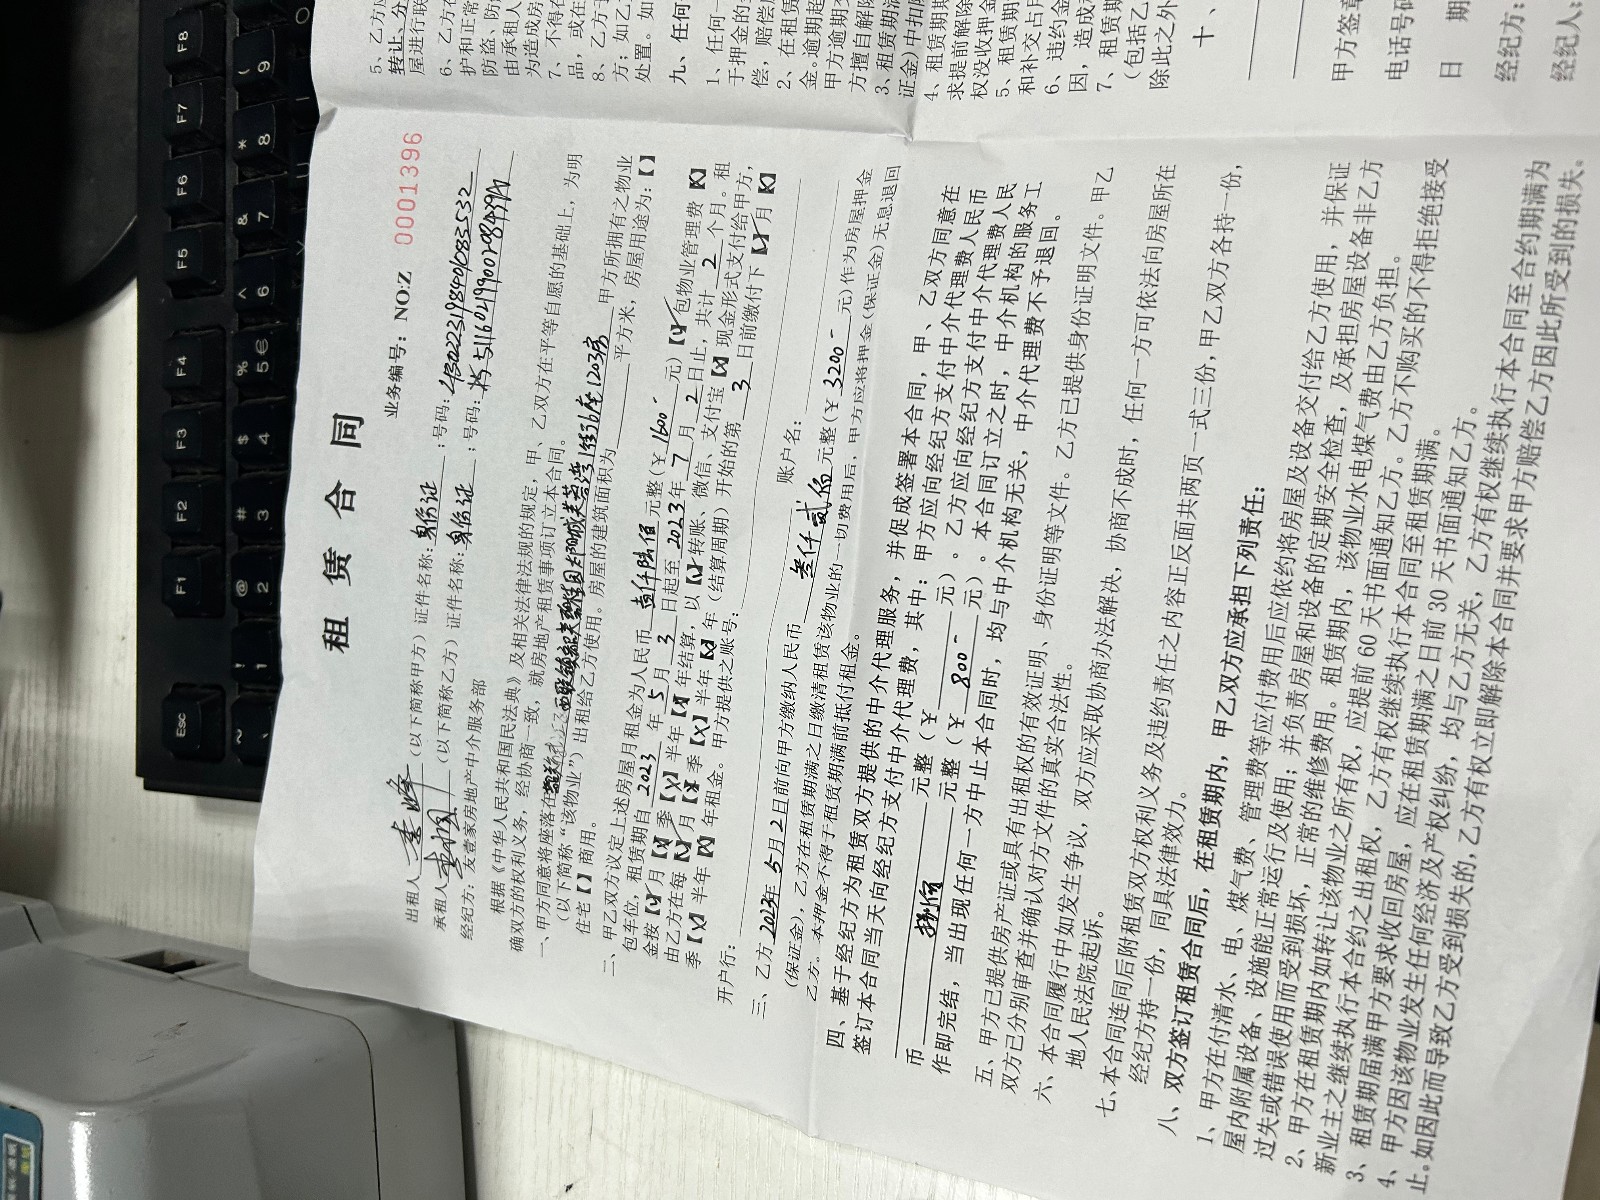 租 赁 合 同
业务编号：NO:Z 0001396
出租人 （以下简称甲方）证件名称：身份证 ；号码：
承租人 （以下简称乙方）证件名称：身份证 ；号码：
经纪方：友壹家房地产中介服务部
根据《中华人民共和国民法典》及相关法律法规的规定，甲、乙双方在平等自愿的基础上，为明
确双方的权利义务，经协商一致，就房地产租赁事项订立本合同。
一、甲方同意将座落在 1203房 甲方所拥有之物业
（以下简称“该物业”）出租给乙方使用。房屋的建筑面积为 平方米，房屋用途为：【 】
住宅【 】商用。
二、甲乙双方议定上述房屋月租金为人民币 壹仟陆佰 元整（￥ 1600- 元）【√】包物业管理费【×】
包车位，租赁期自 2023 年 5 月 3 日起至 2023 年 7 月 2 日止，共计 2 个月。租
金按【√】月【×】季【×】半年【×】年结算，以【√】转账、微信、支付宝【×】现金形式支付给甲方，
由乙方在每【√】月【×】季【×】半年【×】年（结算周期）开始的第 3 日前缴付下【√】月【×】
季【×】半年【×】年租金。甲方提供之账号：
开户行： 账户名：
三、乙方 2023年 5月 2日前向甲方缴纳人民币 叁仟贰佰 元整（￥ 3200- 元）作为房屋押金
（保证金），乙方在租赁期满之日缴清租赁该物业的一切费用后，甲方应将押金（保证金）无息退回
乙方。本押金不得于租赁期满前抵付租金。
四、基于经纪方为租赁双方提供的中介代理服务，并促成签署本合同，甲、乙双方同意在
签订本合同当天向经纪方支付中介代理费，其中：甲方应向经纪方支付中介代理费人民币
元整（￥ 元）。乙方应向经纪方支付中介代理费人民
币 捌佰 元整（￥ 800- 元）。本合同订立之时，中介机构的服务工
作即完结，当出现任何一方中止本合同时，均与中介机构无关，中介代理费不予退回。
五、甲方已提供房产证或具有出租权的有效证明、身份证明等文件。乙方已提供身份证明文件。甲乙
双方已分别审查并确认对方文件的真实合法性。
六、本合同履行中如发生争议，双方应采取协商办法解决，协商不成时，任何一方可依法向房屋所在
地人民法院起诉。
七、本合同连同后附租赁双方权利义务及违约责任之内容正反面共两页一式三份，甲乙双方各持一份，
经纪方持一份，同具法律效力。
八、双方签订租赁合同后，在租赁期内，甲乙双方应承担下列责任：
1、甲方在付清水、电、煤气费、管理费等应付费用后应依约将房屋及设备交付给乙方使用，并保证
屋内附属设备、设施能正常运行及使用；并负责房屋和设备的定期安全检查，及承担房屋设备非乙方
过失或错误使用而受到损坏，正常的维修费用。租赁期内，该物业水电煤气费由乙方负担。
2、甲方在租赁期内如转让该物业之所有权，应提前 60 天书面通知乙方。乙方不购买的不得拒绝接受
新业主之继续执行本合约之出租权，乙方有权继续执行本合同至租赁期满。
3、租赁期届满甲方要求收回房屋，应在租赁期满之日前 30 天书面通知乙方。
4、甲方因该物业发生任何经济及产权纠纷，均与乙方无关，乙方有权继续执行本合同至合约期满为
止。如因此而导致乙方受到损失的，乙方有权立即解除本合同并要求甲方赔偿乙方因此所受到的损失。
5、乙方应
转让、分
屋进行联
6、乙方在
护和正常
防盗、防
由承租人
为造成房
7、不得在
品，或在
8、乙方于
方；如乙
处置。如
九、任何
1、任何一
于押金的
偿，赔偿
2、在租赁
金。逾期超
甲方逾期
方擅自解除
3、租赁期满
证金）中扣除
4、租赁期
求提前解除
权没收押金
5、租赁期
和补交占用
6、违约金
因，造成
7、租赁期
（包括乙
除此之外
十、
甲方签章
电话号码
日 期
经纪方：
经纪人：
Esc F1 F2 F3 F4 F5 F6 F7 F8
~ ! 1 @ 2 # 3 $ 4 % 5 € ^ 6 & 7 * 8 ( 9